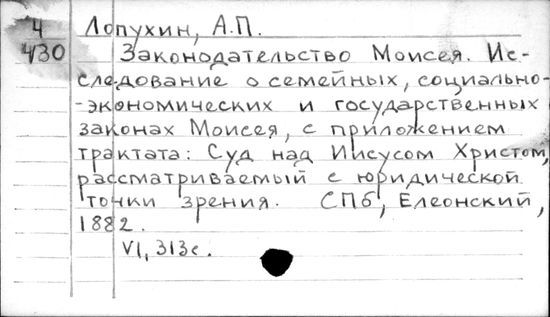 4 Лопухин, А.П.
430 Законодательство Моисея. Ис-
следование о семейных, социально-
-экономических и государственных
законах Моисея, с приложением
трактата: Суд над Иисусом Христом,
рассматриваемый с юридической
точки зрения. СПб, Елеонский,
1882.
VI, 313с.